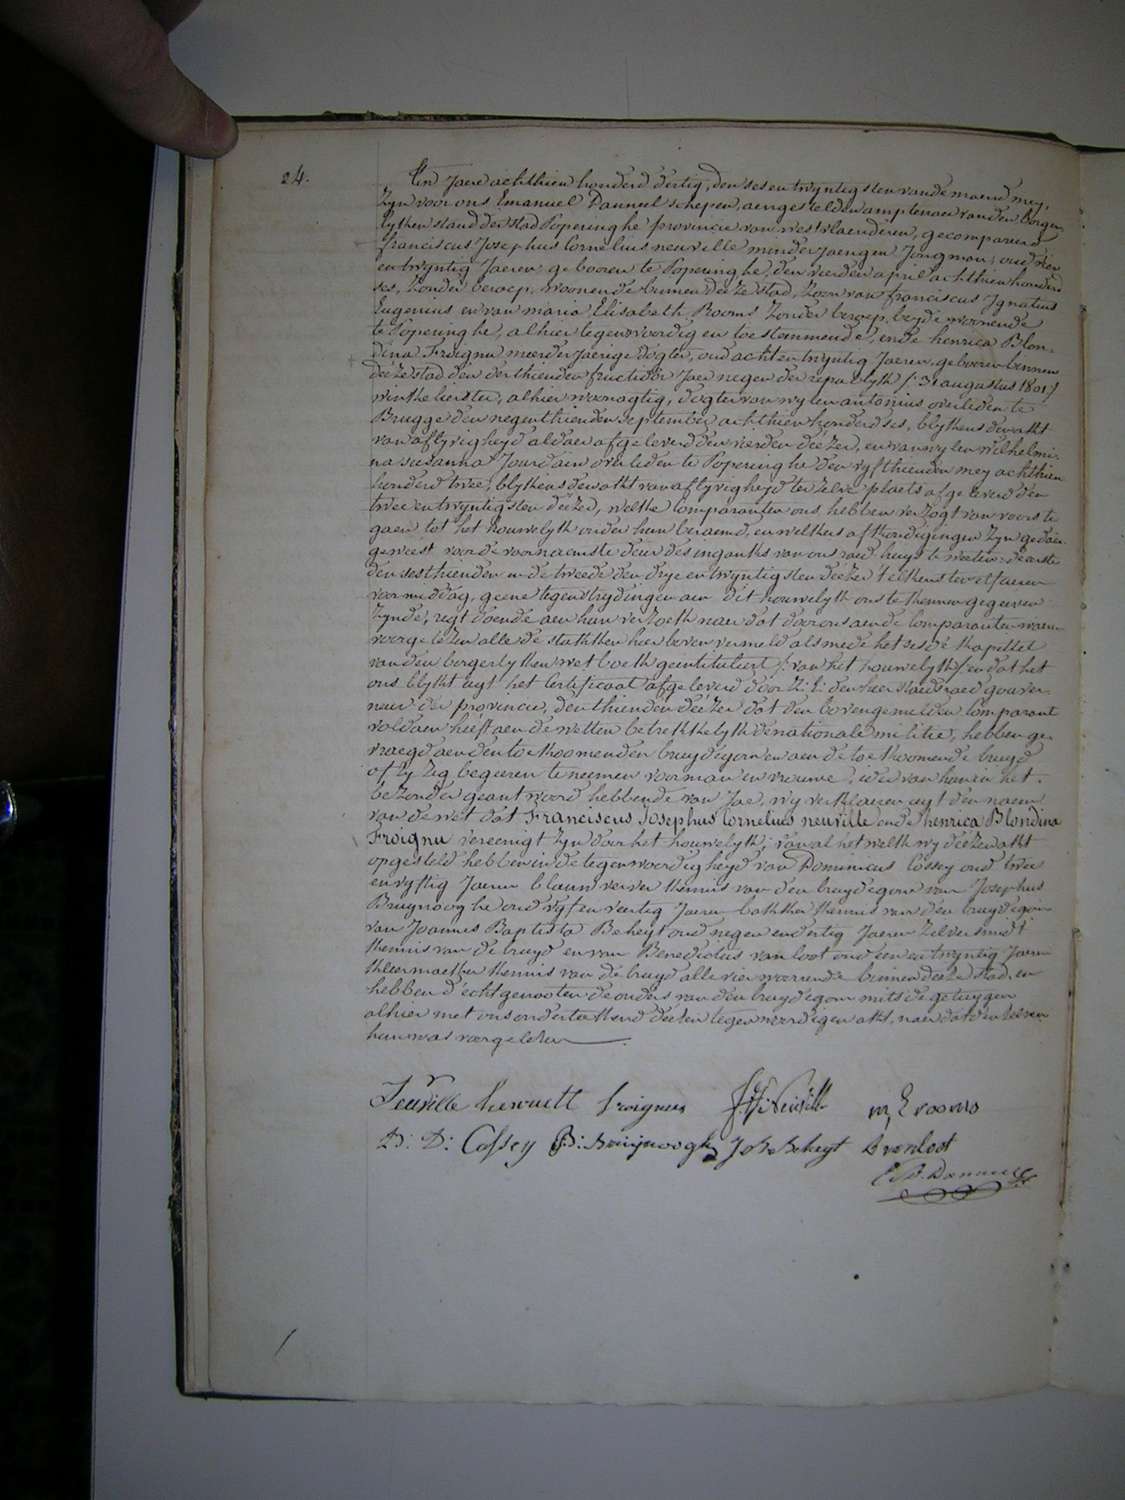 24.
Een Jaere achthien honderd dertig, den ses en twyntigsten van de maend mey,
Zyn voor ons Emanuel Danneel schepen, aengestelden amptenaer van den borger
lyken stand der stad Poperinghe provincie van westvlaenderen, gecompareerd
franciscus Josephus Cornelius neuville minderjaerigen Jongman, oud vier
en twyntig Jaeren gebooren te Poperinghe, den vierden april achthien honderd
ses, zonder beroep, woonende binnen deeze stad, Zoon van franciscus Ignatius
Eugenius en van maria Elisabeth Rooms zonder beroep, beyde woonende
te Poperinghe, alhier tegenwoordig en toestemmende, ende henrica Blon-
dina Froignu meerderjaerige dogter, oud acht en twyntig Jaeren, gebooren binnen
deeze stad den derthienden fructidor Jaer negen der republyk /:31 augustus 1801/
winkelierster, alhier woonagtig, dogter van wylen antonius overleden te
Brugge den negenthienden september achthien honderd ses, blykens den akt
van aflyvigheyd aldaer afgeleverd den vierden deezer, en van wylen wilhelmi-
na susanna Jourdain overleden te Poperinghe den vyfthienden mey achthien
honderd twee, blykens den akt van aflyvigheyd ter zelve plaets afgeleverd den
twee en twyntigsten deezer, welke Comparanten ons hebben verzogt van voorts te
gaen tot het houwelyk onder hun beraemd, en welkers afkondigingen zyn gedaen
geweest voor de voornaemste deur des ingangks van ons raed huys te weten: de eerste
den sesthienden en de tweede den drye en twyntigsten deezer telkens te elf uren
voormiddag, geene tegenstrydingen aen dit houwelyk ons te kennen gegeven
zynde, regt doende aen hun verzoek naer dat door ons aen de Comparanten waeren
voorgelezen alle de stukken hier boven vermeld als mede het sesde kapittel
van den borgerlyken wetboek geentituleert /:van het houwelyk/ en dat het
ons blykt uyt het Certificaet afgeleverd door Z: E: den heer staedsraed gouver-
neur der provincie, den thienden deezer dat den bovengemelden Comparant
voldaen heeft aen de wetten betrekkelyk de nationale militie, hebben ge-
vraegd aen den toekoomenden bruydegom en aen de toekoomende bruyd
of zy zig begeeren te neemen voor man en vrouwe, elk van hun in het
bezonder geantwoord hebbende van Jae, wy verklaeren uyt den naem
van de wet dat Franciscus Josephus Cornelius neuville ende henrica Blondina
Froignu vereenigt zyn door het houwelyk; van al het welk wy deezen akt
opgesteld hebben in de tegenwoordigheyd van Dominicus Cossey oud twee
en vyftig Jaeren blauwverver kennis van den bruydegom van Josephus
Bruynooghe oud vyf en veertig Jaeren bakker kennis van den bruydegom
van Joannes Baptista Beheyt oud negen en dertig Jaeren zilversmid
kennis van de bruyd en van Benedictus van loot oud een en twyntig Jaeren
kleermaeker kennis van de bruyd alle vier woonende binnen deeze stad, en
hebben d'echtgenooten de ouders van den bruydegom mits de getuygen
alhier met ons onderteekend deezen tegenwoordigen akt, naer dat den zelven
hun was voorgelezen
Neuville henriette froignu Neuville m E rooms
D: D: Cossey B: Bruynooghe J B Beheyt B vanloot
E. Danneel